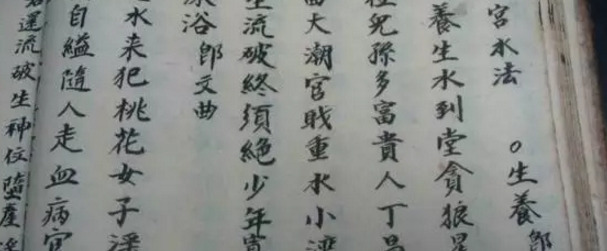 宮水法 ○生養郎
養生水到堂貪狼星
兒孫多富貴人丁昌
大潮官戝重水小灣
流破終須絕少年寡
浴郎文曲
水来犯桃花女子淫
自縊隨人走血病官
還流破生神位墮產淫